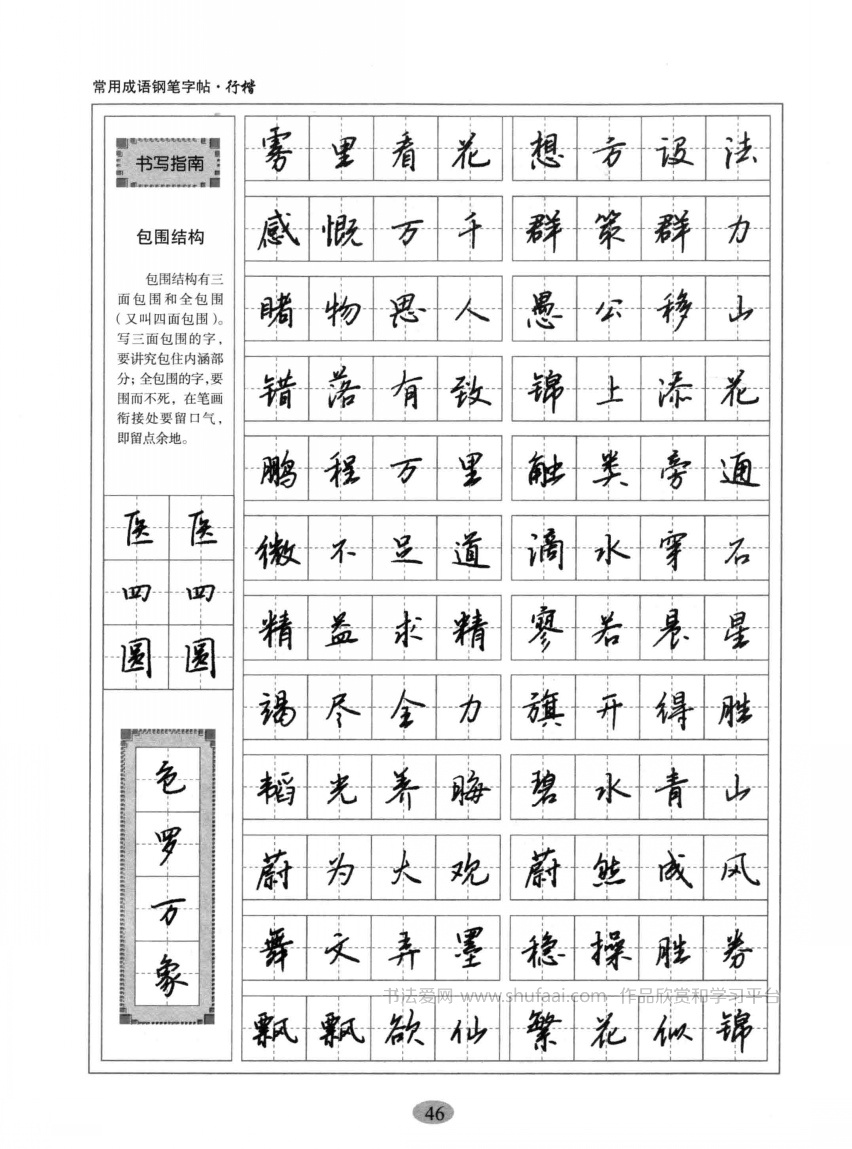 常用成语钢笔字帖·行楷
书写指南
包围结构
包围结构有三
面包围和全包围
(又叫四面包围)。
写三面包围的字,
要讲究包住内涵部
分;全包围的字,要
围而不死,在笔画
衔接处要留口气,
即留点余地。
医 医
四 四
圆 圆
包
罗
万
象
雾里看花 想方设法
感慨万千 群策群力
睹物思人 愚公移山
错落有致 锦上添花
鹏程万里 触类旁通
微不足道 滴水穿石
精益求精 寥若晨星
竭尽全力 旗开得胜
韬光养晦 碧水青山
蔚为大观 蔚然成风
舞文弄墨 稳操胜券
飘飘欲仙 繁花似锦
书法爱网 www.shufaai.com 作品欣赏和学习平台
46